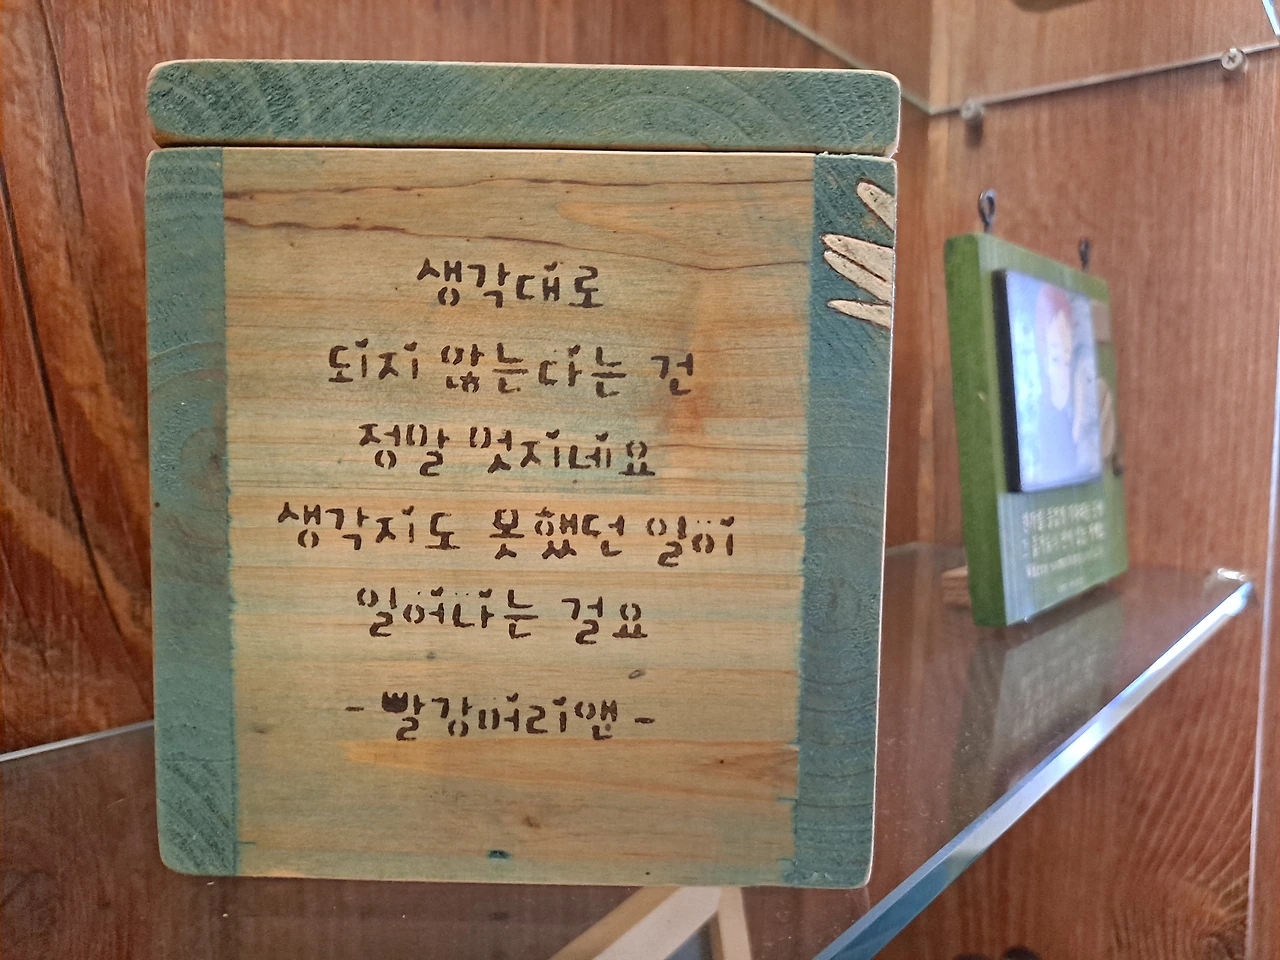 생각대로
되지 않는다는 건
정말 멋지네요
생각지도 못했던 일이
일어나는 걸요
- 빨강머리앤 -